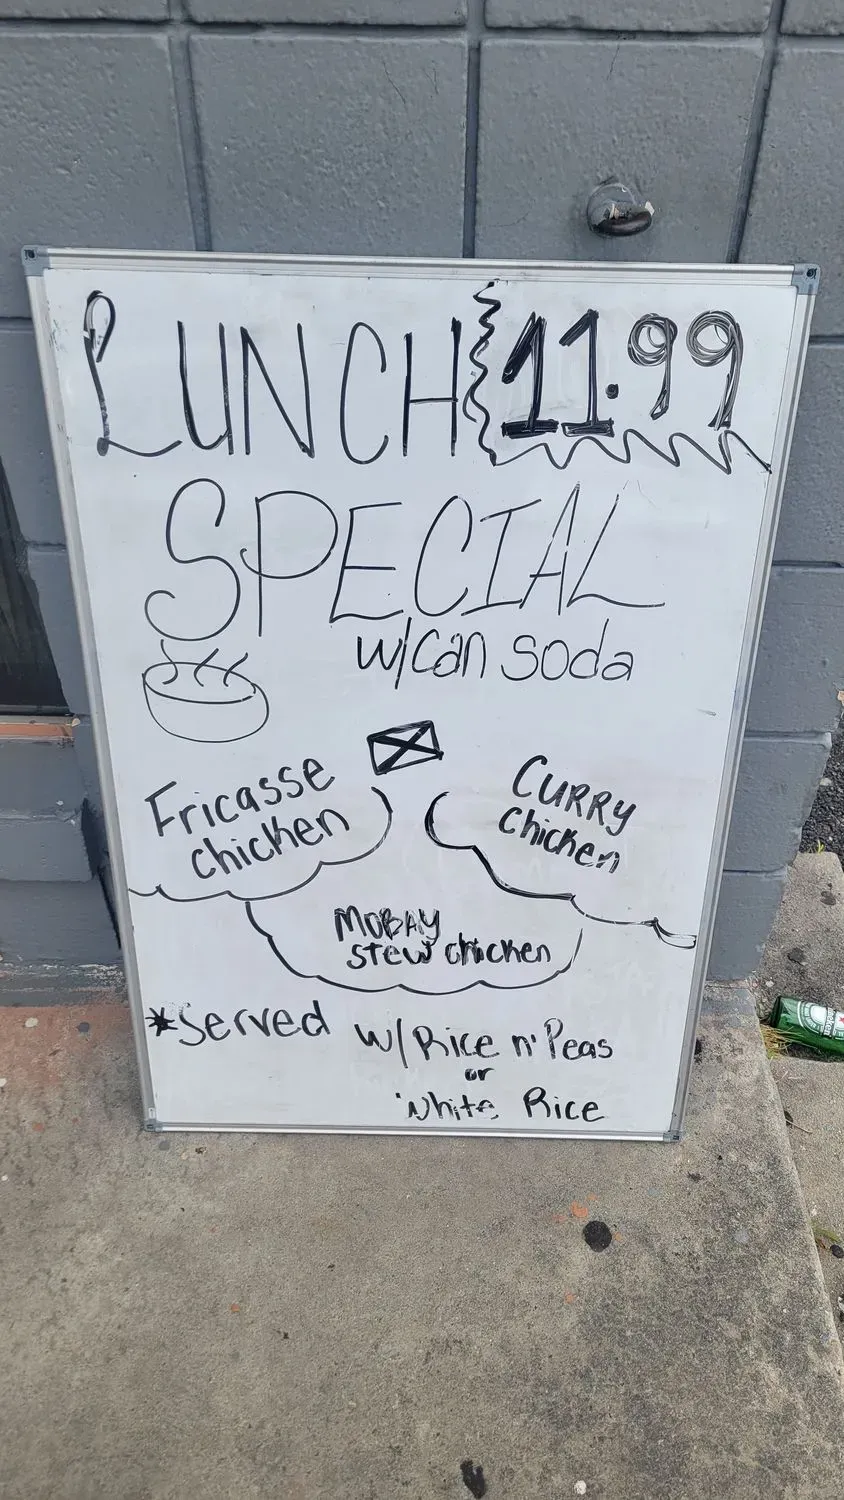 LUNCH 11.99
SPECIAL
w/can soda
Fricasse
chicken
CURRY
chicken
MOBAY
stew chicken
*Served w/Rice n' Peas
or
White Rice